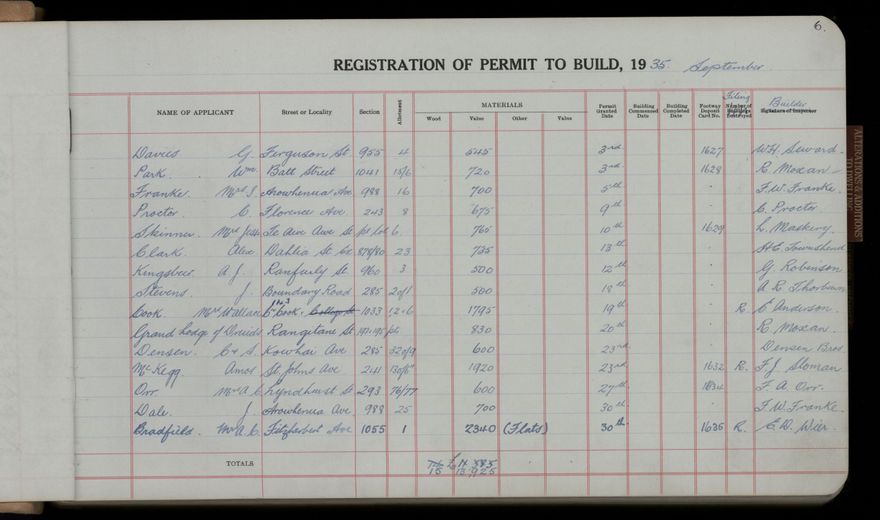 6.
REGISTRATION OF PERMIT TO BUILD, 1935. September
NAME OF APPLICANT Street or Locality Section Allotment MATERIALS Wood Value Other Value Permit Granted Date Building Commenced Date Building Completed Date Footway Deposit Card No. Filing Number of Builder Signature of Inspector
Davies G. Ferguson St. 955 4 545 3rd 1627 W.H. Seward.
Park. Wm. Batt Street 1041 15/6 720 3rd 1628 R. Moxan
Franke. Mrs I. Arowhenua Ave. 988 16 700 5th F.W. Franke
Proctor. C. Florence Ave. 243 8 675 9th C. Proctor.
Skinner. Mrs Te Awe Awe St. 6. 765 10th 1629 L. Maskery.
Clark. Alex Dahlia St 878/80 23 735 13th H.E. Townshend
Kingsbeer A J. Ranfurly St 960 3 500 12th G. Robinson
Stevens J. Boundary Road 285 2 of 1 500 18th A R. Thorburn
Cook Mrs Wallace Cr Cook & College St 1033 12.6 1795 19th R. C Anderson.
Grand Lodge of Druids. Rangitane St. 830 20th R. Moxan.
Densen. C & S. Kowhai Ave 285 600 23rd Densen Bros.
McKegg. Amos St Johns Ave 241 1920 23rd 1632 R. F.J. Sloman
Orr. Mrs A.C. Lyndhurst St 293 76/77 600 27th 1634 F. A Orr.
Dale. J. Arowhenua Ave. 988 25 700 30th F.W. Franke.
Bradfield. Mr A.C. Fitzherbert Ave 1055 1 2340 (Flats) 30th 1635 R. E.W. Wier.
TOTALS £14 585
15 13,925
ALTERATIONS & ADDITIONS
TO DWELLING